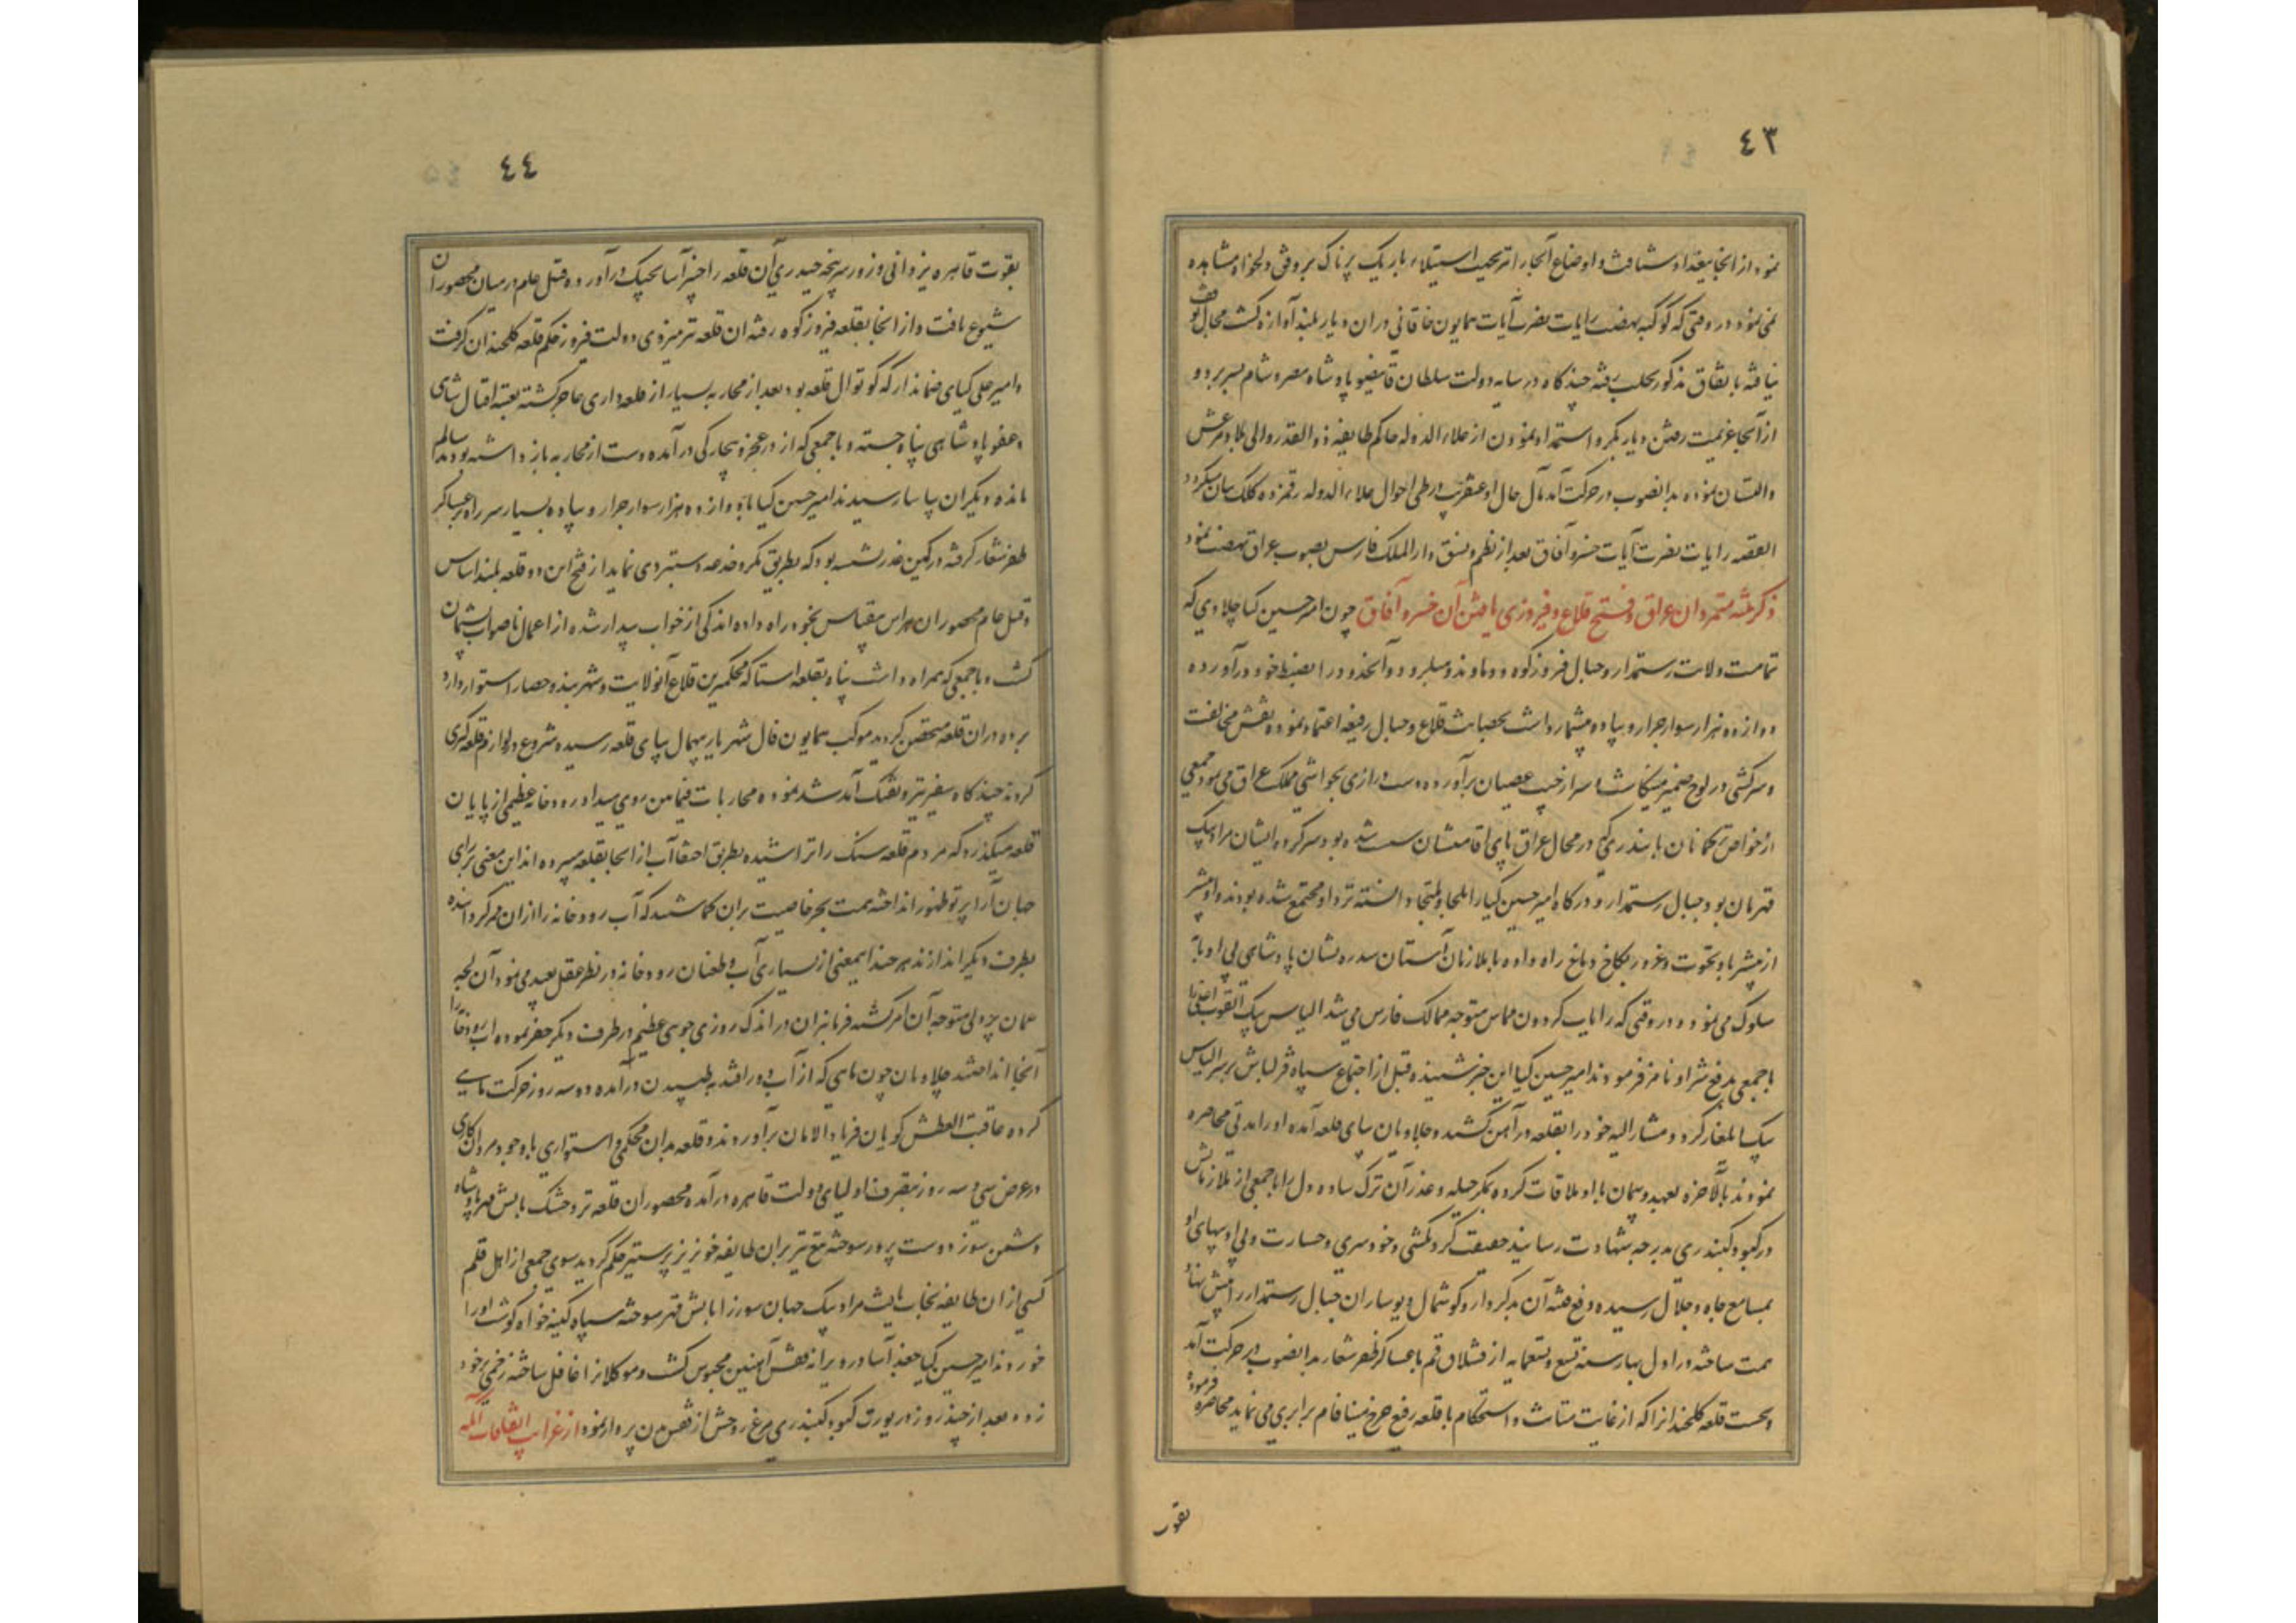 ٤٣
نمود از انجا ببغداد شتافت و اوضاع آنجا را تحت استیلاء باریک پرناک بر وفق دلخواه مشاهده
نمی نمود و در وقتی که کوکبه نهضت رایات نصرت آیات همایون خاقانی در ان دیار بلند آوازه کشت مجال توقف
نیافته باتفاق مذکور بحلب رفته چند کاه در سایه دولت سلطان قانیصو پادشاه مصر و شام بسر برد و
از آنجا عزیمت رفتن دیار بکر و استمداد نمودن از علاء الدوله حاکم طایفه ذو القدر و والی بلاد مرعش
والبستان نموده بدانصوب در حرکت آمد مآل حال او عنقریب در طی احوال علاء الدوله رقمزده کلک بیان میکردد
القصه رایات نصرت آیات خسرو آفاق بعد از نظم و نسق دار الملک فارس بصوب عراق نهضت نمود
ذکر تنبیه متمردان عراق و فتح قلاع و فیروزی یافتن آن خسرو آفاق چون امیر حسین کیا چلاوی که
تمامت ولایت رستمدار و جبال فیروزکوه و دماوند و هبلرود و آنحدود را بضبط خود در آورده
دوازده هزار سوار جرار و پیاده بیشمار داشت بحصانت قلاع و جبال رفیعه اعتماد نموده نقش مخالفت
و سرکشی در لوح ضمیر مینکاشت و سر از جیب عصیان برآورده دست درازی بحواشی ملک عراق می نمود جمعی
از خواص ترکمانان بایندری که در محال عراق پای اقامتشان سست شده بود و سرکرده ایشان مراد بیک
قهرمان بود بجبال رستمدار و درکاه امیر حسین کیا را ملجا و ملتجا دانسته نزد او مجتمع شده بودند و او بیشتر
از پیشتر باد نخوت و غرور بکاخ دماغ راه داده با ملازمان آستان سدره نشان پادشاهی بی ادبانه
سلوک می نمود و در وقتی که رایات کردون مماس متوجه ممالک فارس می شد الیاس بیک ایقوت اغلی را
با جمعی بدفع شر او نامزد فرمودند امیر حسین کیا این خبر شنیده قبل از اجتماع سپاه قزلباش بر سر الیاس
بیک ایلغار کرد و مشار الیه خود را بقلعه ورامین کشید و چلاویان بپای قلعه آمده او را مدتی محاصره
نمودند بالاخره بعهد و پیمان با او ملاقات کرده بمکر و حیله و غدر آن ترک ساده دل را با جمعی از ملازمانش
در کبود کنبد ری بدرجه شهادت رسانید حقیقت کردنکشی و خودسری و جسارت و بی ادبیهای او
بمسامع جاه و جلال رسیده دفع فتنه آن بدکردار و کوشمال دیوساران جبال رستمدار را پیش نهاد
همت ساخته در اول بهار سنه تسع و تسعمایه از قشلاق قم با عساکر ظفر شعار بدانصوب در حرکت آمد
و نخست قلعه کلخندان را که از غایت متانت و استحکام با قلعه رفیع چرخ مینا فام برابری می نماید محاصره فرموده
بقوت
٤٤
بقوت قاهره یزدانی و زور سرپنجه حیدری آن قلعه را خیبر آسا بحیک در آورده قتل عام در میان محصوران
شیوع یافت و از انجا بقلعه فیروزکوه رفته ان قلعه نیز بنیروی دولت فیروز حکم قلعه کلخندان کرفت
و امیر علی کیای ضماندار که کوتوال قلعه بود بعد از محاربه بسیار از قلعه داری عاجز کشته بعتبه اقبال شاهی
و عفو پادشاهی پناه جسته و با جمعی که از در عجز و بیچارکی در آمده دست از محاربه باز داشته بودند سالم
مانده دیکران بیاسا رسیدند امیر حسین کیا با دوازده هزار سوار جرار و پیاده بسیار سر راه بر عساکر
ظفر شعار کرفته در کمین غدر نشسته بود که بطریق مکر و خدعه دستبردی نماید از فتح این دو قلعه بلند اساس
و قتل عام محصوران هراس بیقیاس بخود راه داده اندکی از خواب پندار بیدار شده از اعمال ناصواب پشیمان
کشت و با جمعی که همراه داشت پناه بقلعه استا که محکمترین قلاع آنولایت و شهربند و حصار استوار دارد
برده در ان قلعه متحصن کردید موکب همایون فال شهریار بیهمال بپای قلعه رسیده شروع در لوازم قلعه کیری
کردند چند کاه سفیر تیر و تفنک آمد شد نموده محاربات فیما بین روی میداد رودخانه عظیمی از پایان
قلعه میکذرد که مردم قلعه سنک را تراشیده بطریق اخفا آب از انجا بقلعه میبرده اند این معنی بر رای
جهان آرا پرتو ظهور انداخته همت بحر خاصیت بران کماشتند که آب رودخانه را از ان ممر کردانیده
بطرف دیکر اندازند هر چند اینمعنی از بسیاری آب و طغیان رودخانه در نظر عقل بعید می نمود آن لجه
عمان چو ولی متوجه آن امر کشته فرمانبران در اندک روزی جوی عظیم در طرف دیکر حفر نموده اب رودخانه را
آنجا انداختند چلاویان چون ماهی که از آب دور افتد به طپیدن در آمده دو سه روز حرکت مذبوحی
کرده عاقبت العطش کویان فریاد الامان برآوردند و قلعه بدان محکمی و استواری با وجود مردان کاری
در عرض سی و سه روز بتصرف اولیای دولت قاهره درآمده محصوران قلعه تر و خشک باتش قهر پادشاه
دشمن سوز دوست پرور سوخته تیغ تیز بران طایفه خونریز پرستیز حکم کردید سوی جمعی از اهل قلم
کسی از ان طایفه نجات نیافت مراد بیک جهان سوز را باتش قهر سوخته سپاه کینه خواه کوشت او را
خوردند امیر حسین کیا جغد آسا در ویرانه قفس آهنین محبوس کشت و موکلانرا غافل ساخته زخمی بر خود
زده بعد از چند روز در یورت کبود کنبد ری مرغ روحش از قفس بدن پرواز نمود از غرایب اتفاقات آنکه